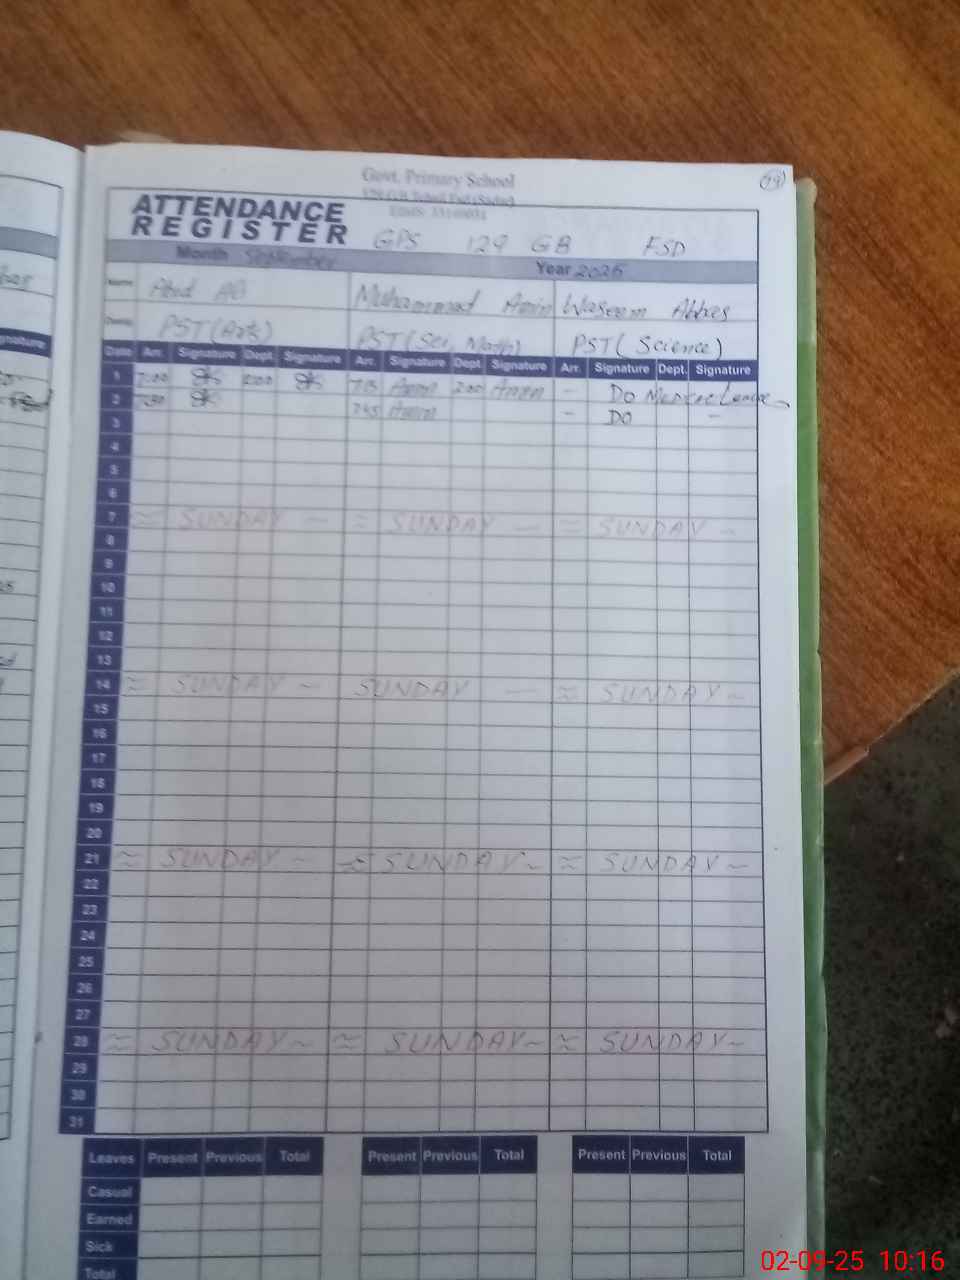 Govt. Primary School
79
ATTENDANCE
REGISTER
GPS 129 GB FSD
Month September
Year 2025
Name Abid Ali Muhammad Amin Waseem Abbas
PST (Arts) PST (Sci, Math) PST (Science)
Date Arr. Signature Dept. Signature Arr. Signature Dept. Signature Arr. Signature Dept. Signature
1 7:00 2:00 7:15 Amin 2:00 Amin - Do Medical Leave
2 7:30 7:45 Amin - DO -
3
4
5
6
7 SUNDAY SUNDAY SUNDAY
8
9
10
11
12
13
14 SUNDAY SUNDAY SUNDAY
15
16
17
18
19
20
21 SUNDAY SUNDAY SUNDAY
22
23
24
25
26
27
28 SUNDAY SUNDAY SUNDAY
29
30
31
Leaves Present Previous Total Present Previous Total Present Previous Total
Casual
Earned
Sick
Total
02-09-25 10:16